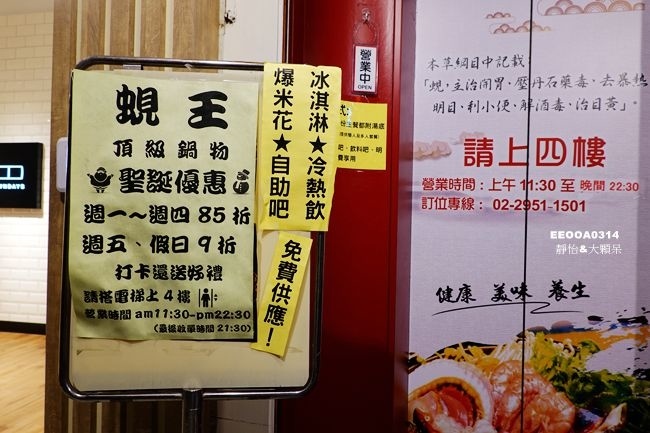 蜆王
頂級鍋物
聖誕優惠
週一～週四 85折
週五、假日9折
打卡還送好禮
請搭電梯上4樓
營業時間am11:30-pm22:30
(最後收單時間21:30)
爆米花★自助吧
冰淇淋★冷熱飲
免費供應！
營業中
OPEN
主餐都附湯底
吧、飲料吧、明
費享用
本草綱目中記載
「蜆，主治開胃、壓丹石藥毒，去暴熱
明目、利小便、解酒毒，治目黃」。
請上四樓
營業時間：上午 11:30 至 晚間 22:30
訂位專線： 02-2951-1501
EEOOA0314
靜怡&大顆呆
健康 美味 養生